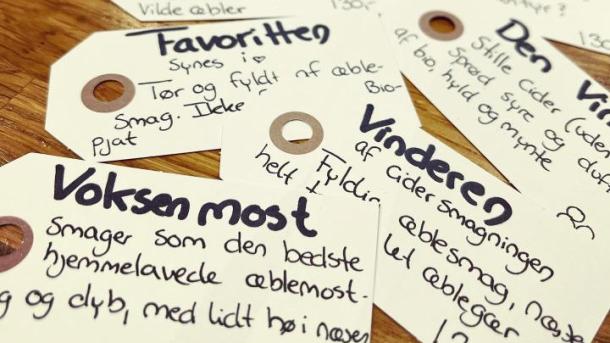 Vilde æbler 130,-
Favoritten
Synes i ♡
Tør og fyldt af æble-
Smag. Ikke Bio-
pjat
Voksenmost
Smager som den bedste
hjemmelavede æblemost.
g og dyb, med lidt hø i næsen
Vinderen
af Cider smagningen
Fyldi
helt
æblesmag, næs
let æblegær
Den Vi
Stille Cider (uden
af bio, Sprød syre og duf
hyld og mynte
130
130